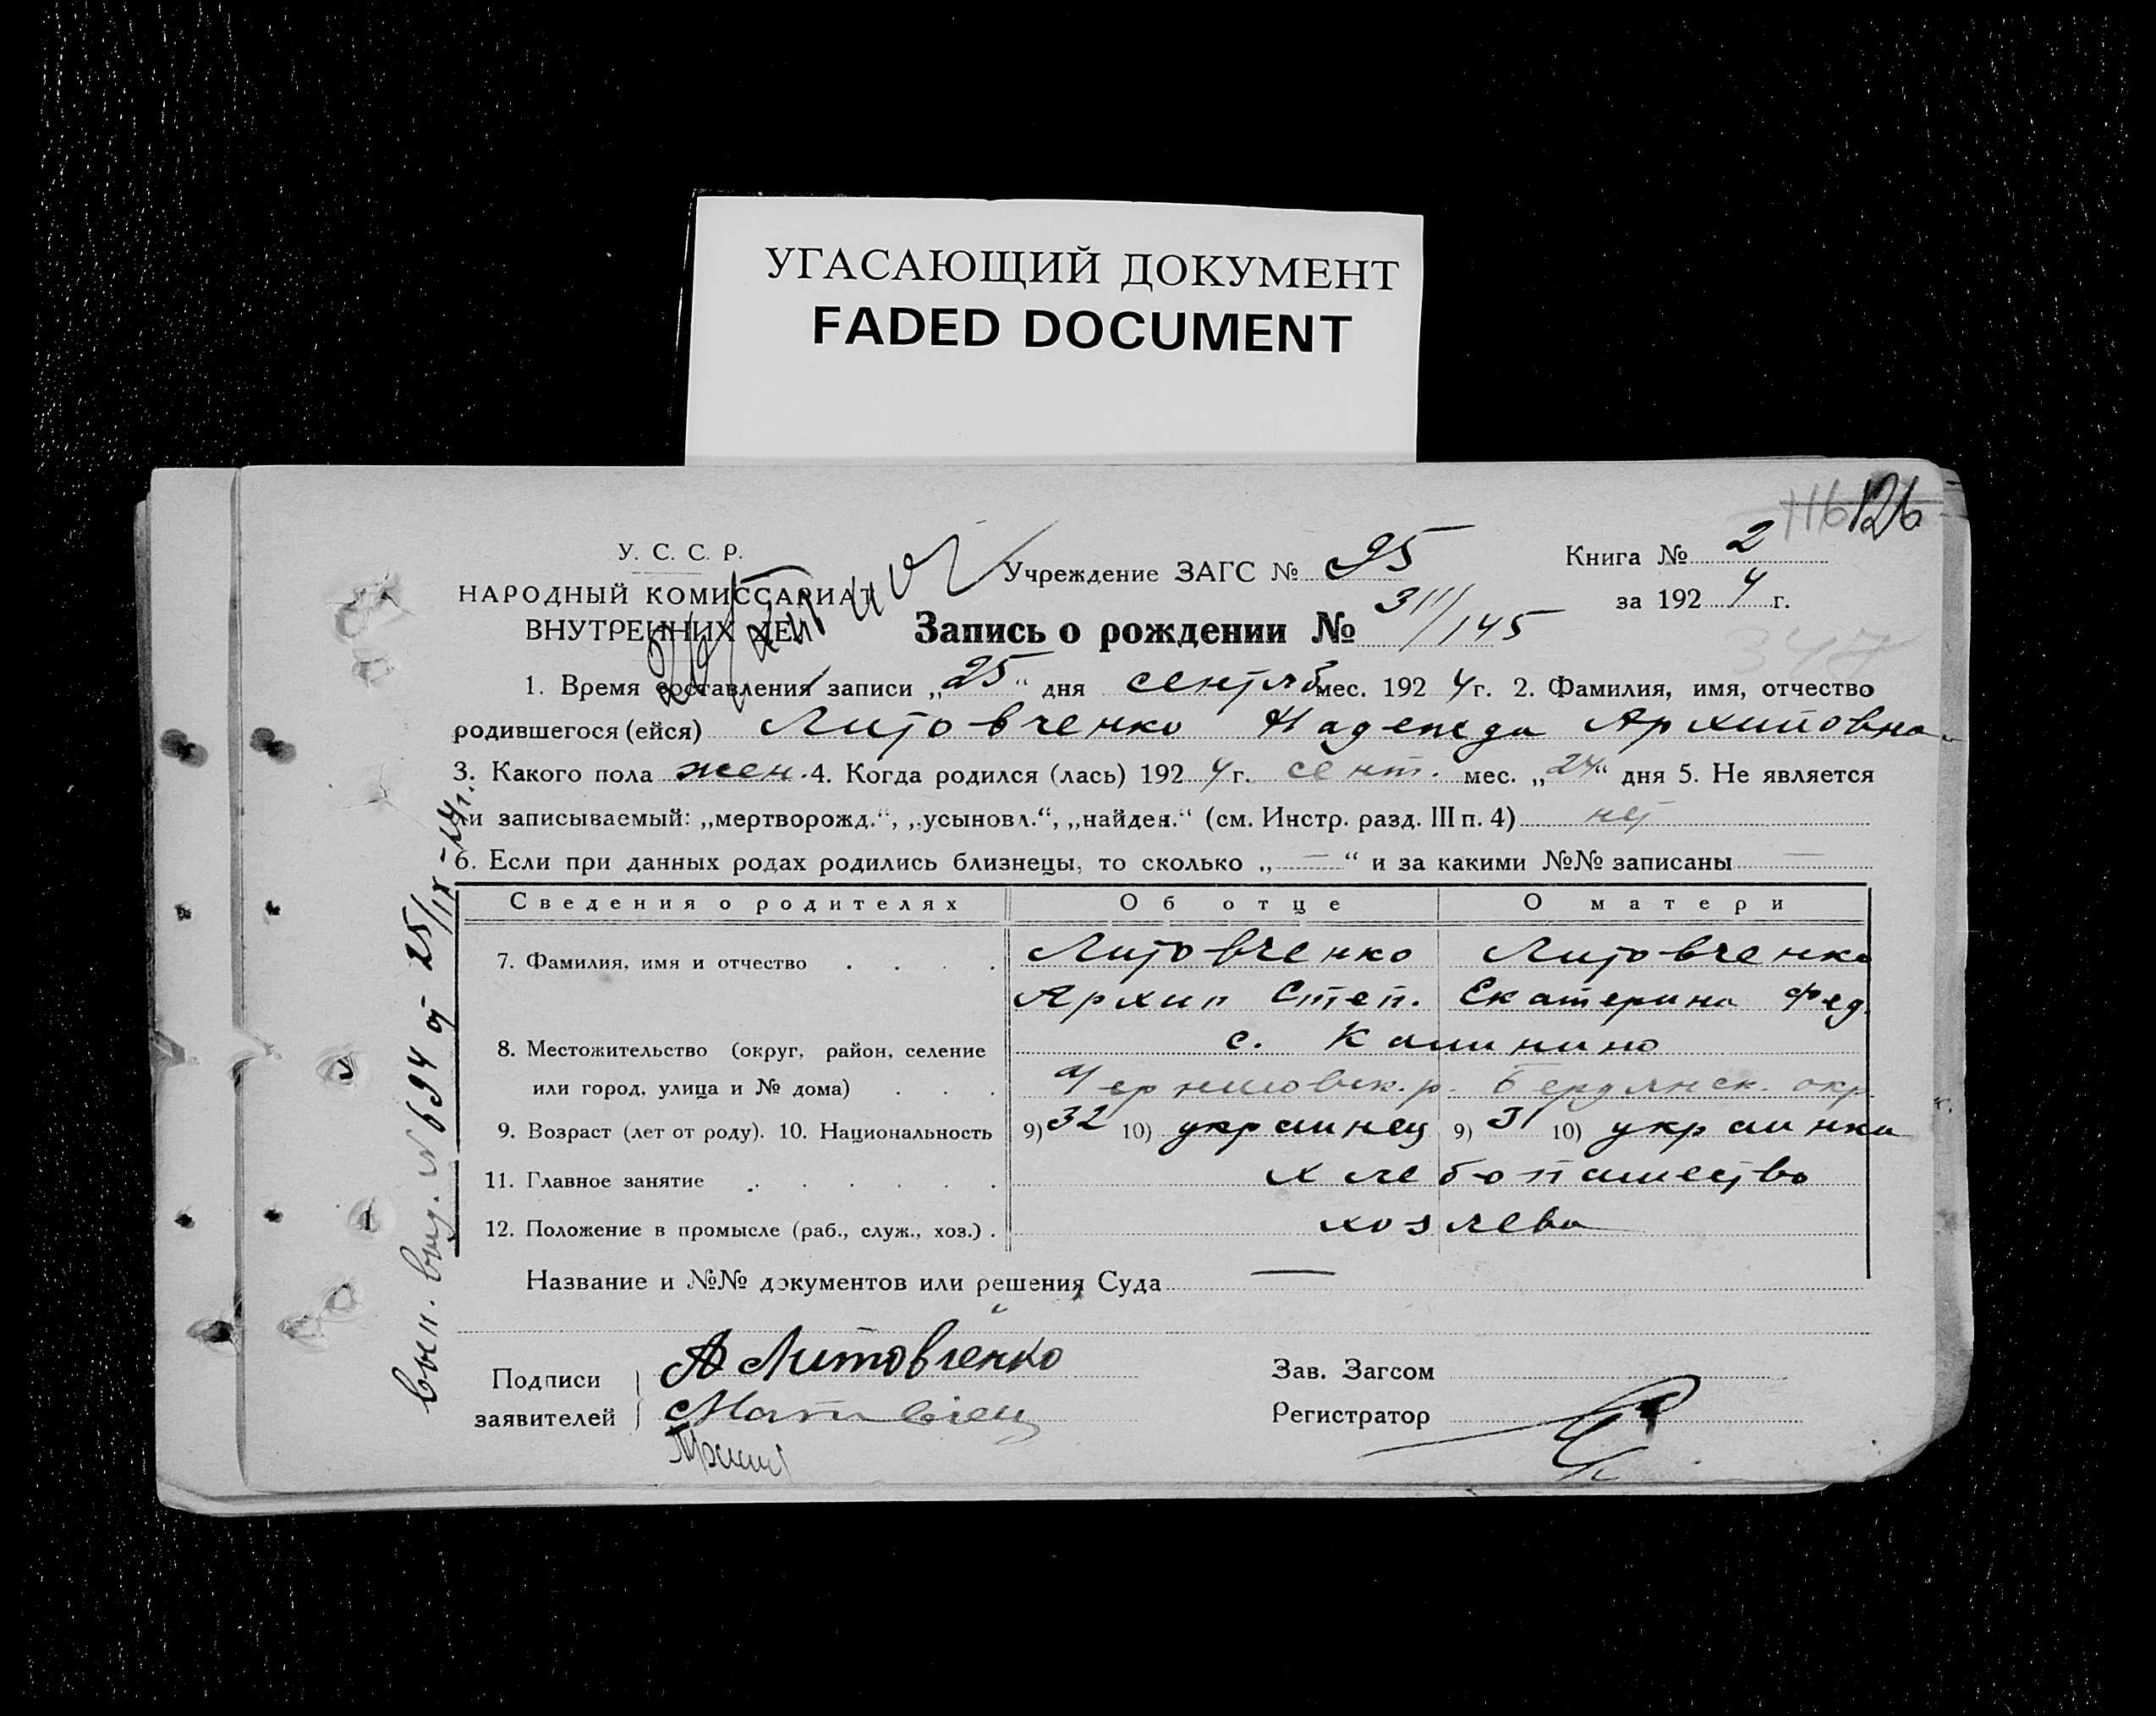 УГАСАЮЩИЙ ДОКУМЕНТ
FADED DOCUMENT
116 126
У. С. С. Р.
НАРОДНЫЙ КОМИССАРИАТ
ВНУТРЕННИХ ДЕЛ
Учреждение ЗАГС № 95
Книга № 2
за 1924 г.
Запись о рождении № 311/145
347
1. Время составления записи „25“ дня сентяб мес. 1924 г. 2. Фамилия, имя, отчество
родившегося (ейся) Литовченко Надежда Архиповна
3. Какого пола жен. 4. Когда родился (лась) 1924 г. сент. мес. „24“ дня 5. Не является
ли записываемый: „мертворожд.“, „усыновл.“, „найден.“ (см. Инстр. разд. III п. 4) нет
6. Если при данных родах родились близнецы, то сколько „—“ и за какими №№ записаны —
Сведения о родителях Об отце О матери
7. Фамилия, имя и отчество . . . . Литовченко Литовченко
Архип Степ. Екатерина Фед.
8. Местожительство (округ, район, селение с. Калинино
или город, улица и № дома) . . . Черниговск. р. Бердянск. окр.
9. Возраст (лет от роду). 10. Национальность 9) 32 10) украинец 9) 31 10) украинка
11. Главное занятие . . . . . . хлебопашество
12. Положение в промысле (раб., служ., хоз.) . хозяева
Название и №№ документов или решения Суда —
Подписи
заявителей
А Литовченко
Зав. Загсом
Регистратор
вып. выд. № 694 от 25/IX-24г.